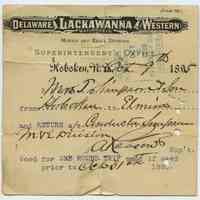 DELAWARE, LACKAWANNA & WESTERN
MORRIS AND ESSEX DIVISION
SUPERINTENDENT'S OFFICE
Hoboken, N.J. Oct 9th 1895
Mrs. J. Simpson &
from Hoboken to Elmira
and RETURN a/c Conductor Simpson
M & E Division
A Reasoner Sup't.
Good for ONE ROUND TRIP if used
prior to Oct 31st